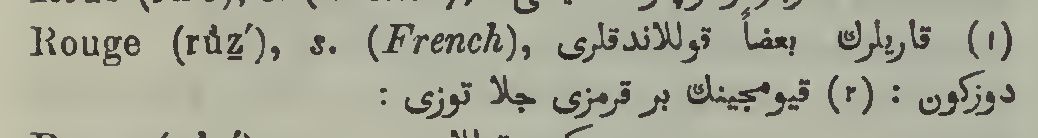 Rouge (růz̲′), s. (French), (١) قاريلرڭ بعضاً قوللاندقلرى
دوزكون : (٢) قيومجينڭ بر قرمزى جلا توزى :